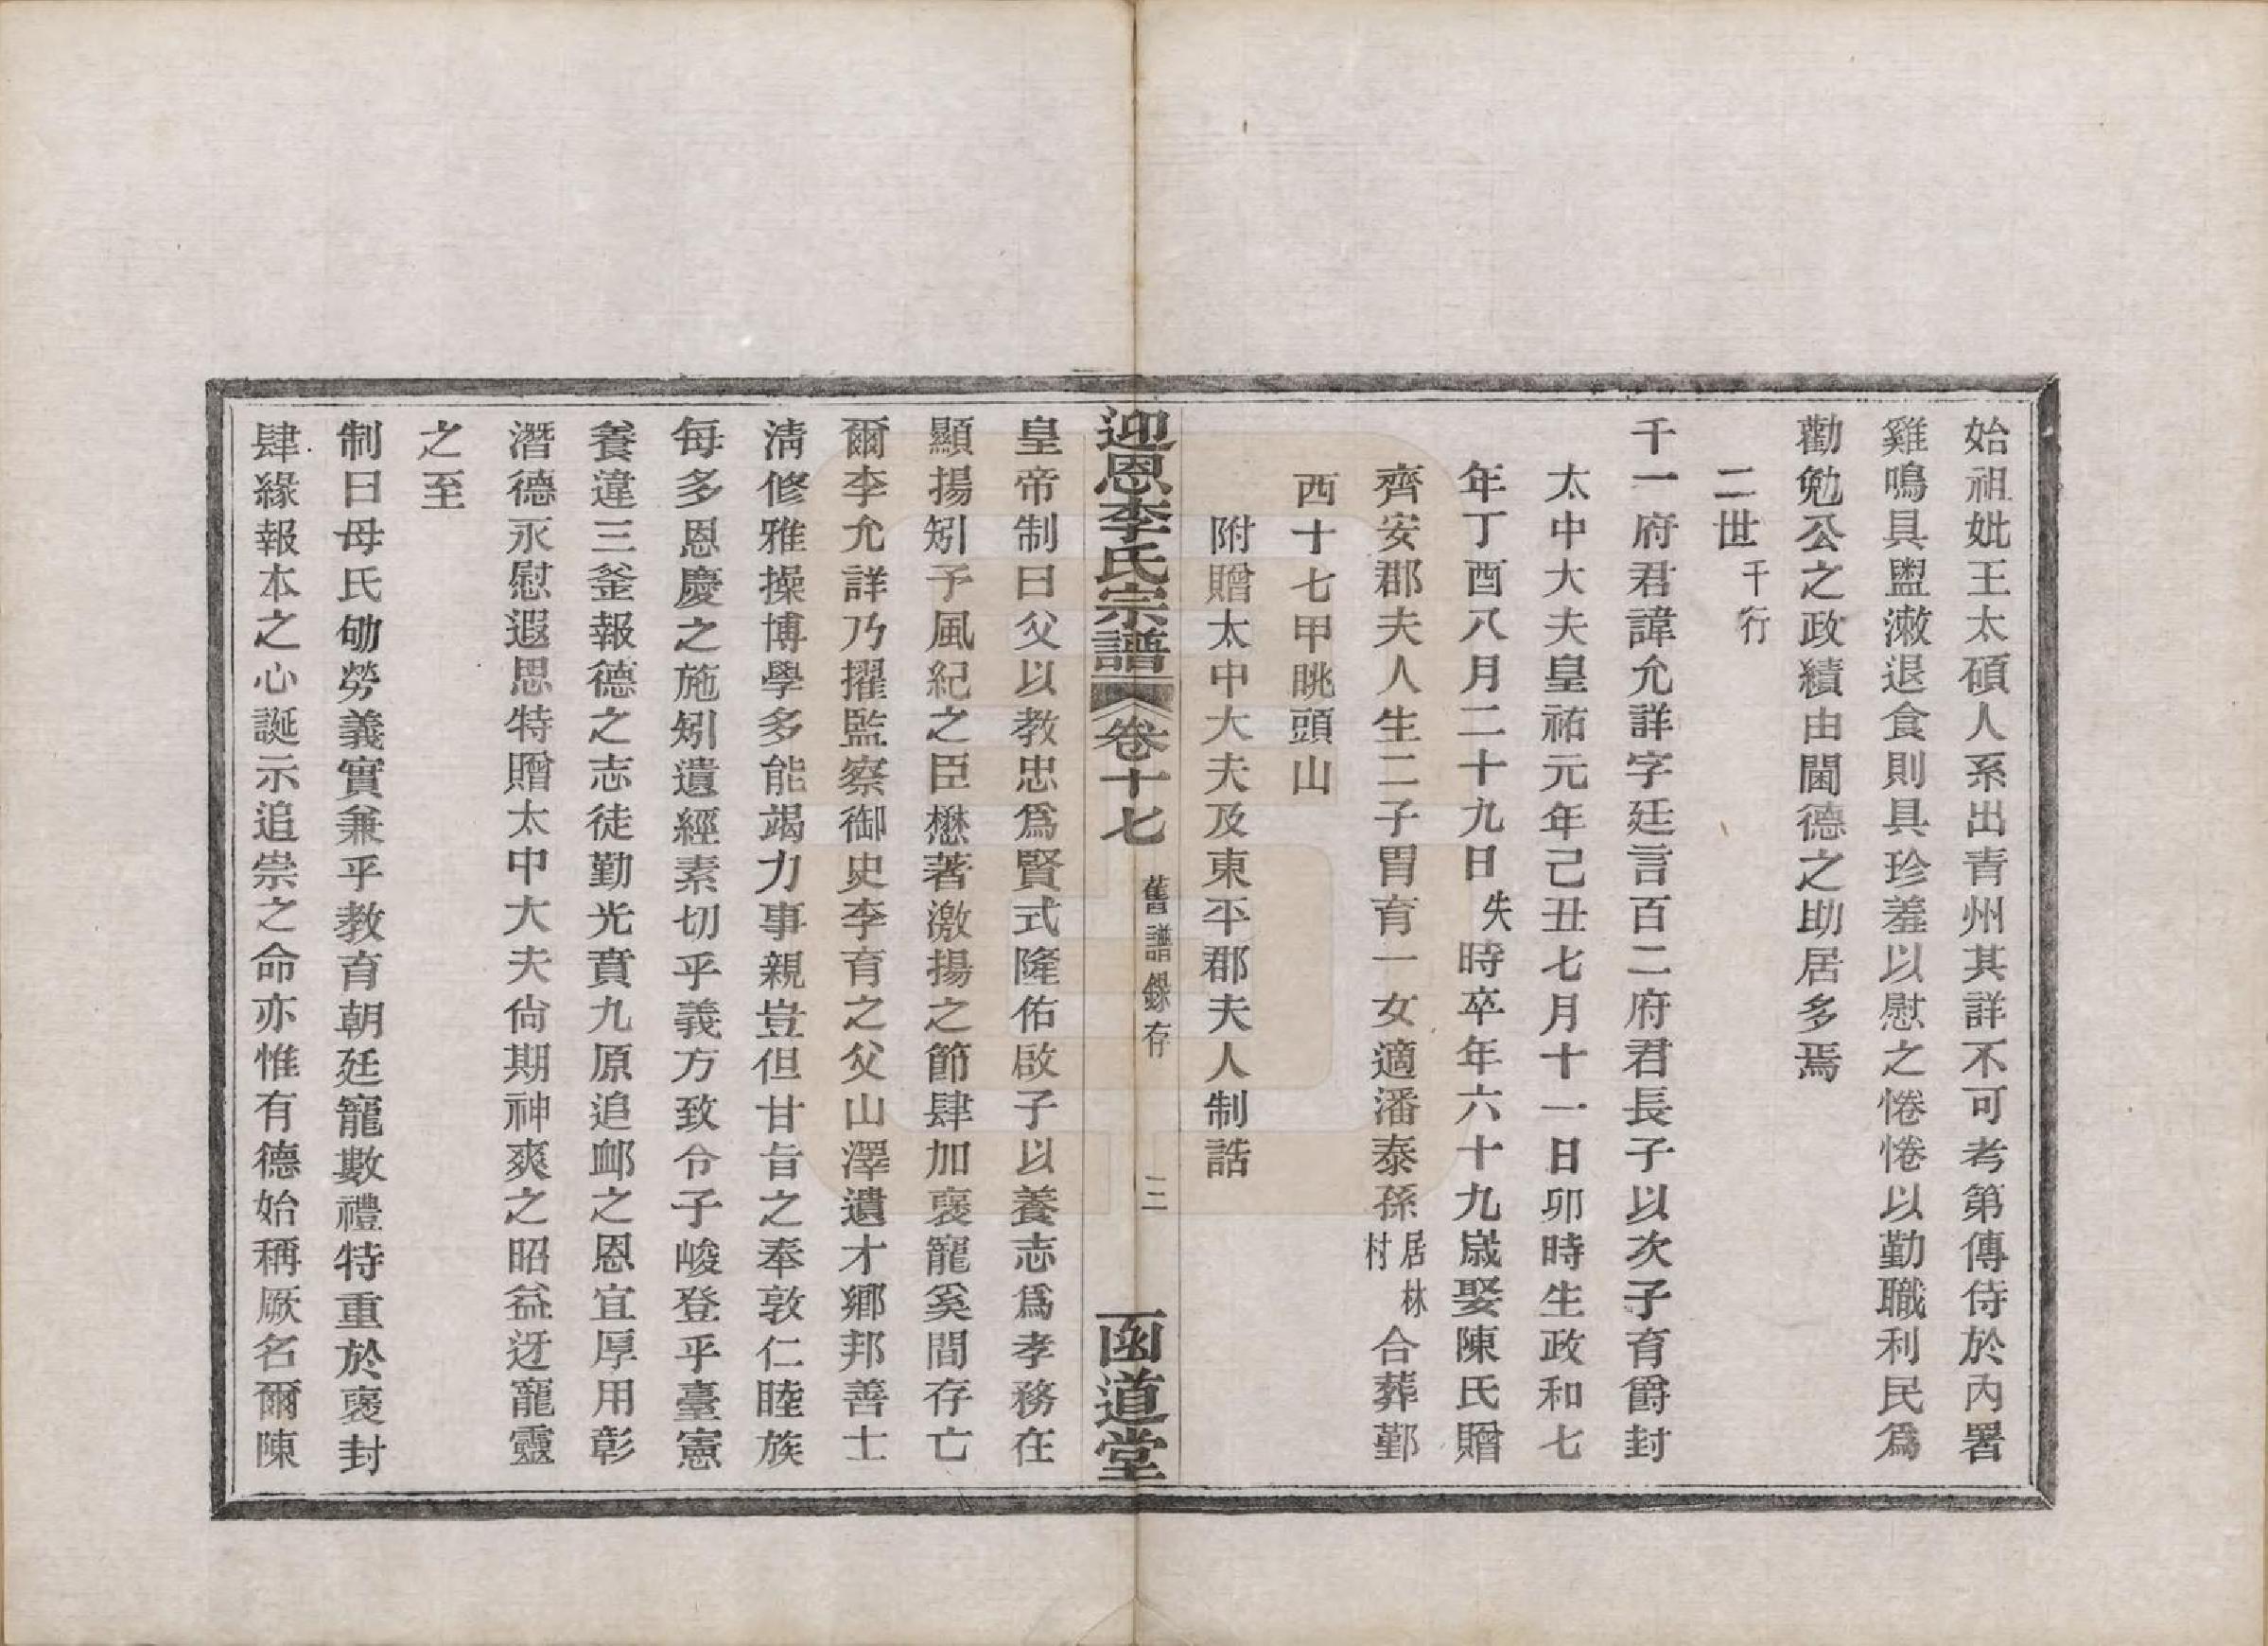 始祖妣王太碩人系出青州其詳不可考第傳侍於內署
雞鳴具盥漱退食則具珍羞以慰之惓惓以勤職利民爲
勸勉公之政績由閫德之助居多焉
二世千行
千一府君諱允詳字廷言百二府君長子以次子育爵封
太中大夫皇祐元年己丑七月十一日卯時生政和七
年丁酉八月二十九日失時卒年六十九歲娶陳氏贈
齊安郡夫人生二子胄育一女適潘泰孫居林村合葬鄞
西十七甲眺頭山
附贈太中大夫及東平郡夫人制誥
迎恩李氏宗譜 卷十七 舊譜錄存 三 函道堂
皇帝制曰父以教忠爲賢式隆佑啟子以養志爲孝務在
顯揚矧予風紀之臣懋著激揚之節肆加褒寵奚間存亡
爾李允詳乃擢監察御史李育之父山澤遺才鄉邦善士
淸修雅操博學多能竭力事親豈但甘旨之奉敦仁睦族
每多恩慶之施矧遺經素切乎義方致令子峻登乎臺憲
養違三釜報德之志徒勤光賁九原追䘏之恩宜厚用彰
潛德永慰遐思特贈太中大夫尙期神爽之昭益迓寵靈
之至
制曰母氏劬勞義實兼乎教育朝廷寵數禮特重於褒封
肆緣報本之心誕示追崇之命亦惟有德始稱厥名爾陳